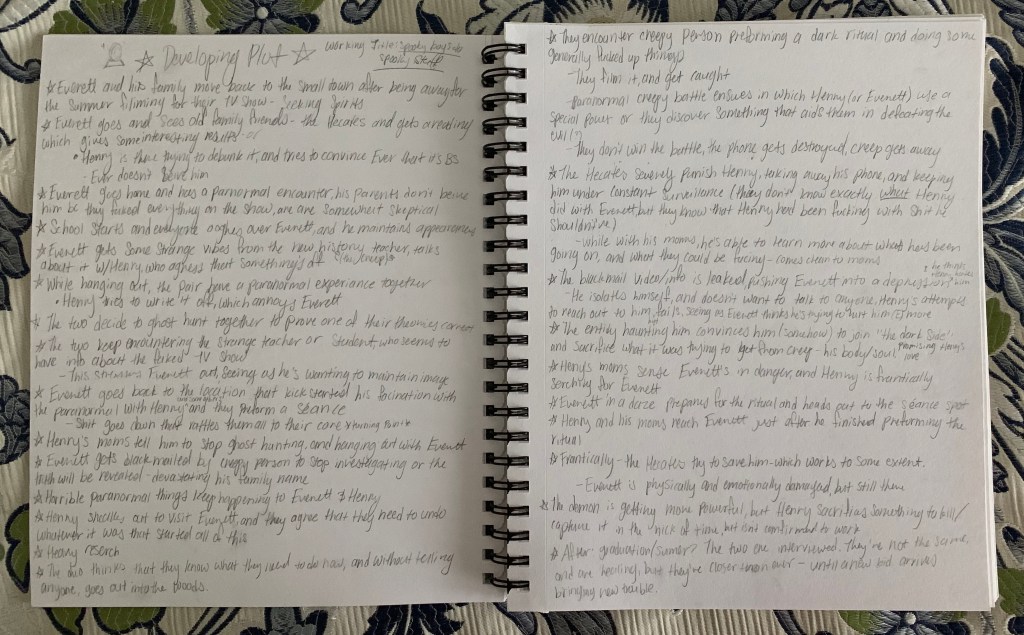 ☆ Developing Plot ☆ Working Title: spooky boys do
spooky stuff
☆ Everett and his family move back to the small town after being away for
the summer filiming for their TV show - Seeking Spirits
☆ Everett goes and sees old family friends - the Hecates and gets a reading
which gives some interesting results - or
• Henry is there trying to debunk it, and tries to convince Ever that it's BS
- Ever doesn't belive him
☆ Everett goes home and has a parnormal encounter, his parents don't belive
him bc they faked everything on the show, are are somewhat skeptical
☆ School starts and everyone over Everett, and he maintains appearances
☆ Everett gets some strange vibes from the new history teacher, talks
about it w/Henry, who agrees that something's off
☆ While hanging out, the pair have a paranormal experience together
• Henry tries to write it off, which annoys Everett
☆ The two decide to ghost hunt together to prove one of their theories correct
☆ The two keep encountering the strange teacher or student, who seems to
have info about the faked TV show
- This stresses Everett out, seeing as he's wanting to maintain image
☆ Everett goes back to the location that kickstarted his facination with
the paranormal with Henry and they preform a séance
- Shit goes down that rattles them all to their core ☆turning point☆
☆ Henry's moms tell him to stop ghost hunting, and hanging out with Everett
☆ Everett gets blackmailed by creepy person to stop investigating or the
truth will be revealed - devastating his family name
☆ Horrible paranormal things keep happening to Everett & Henry
☆ Henry sneaks out to visit Everett, and they agree that they need to undo
whatever it was that started all of this
☆ Heavy reserch
☆ The duo thinks that they know what they need to do now, and without telling
anyone, goes out into the woods.
☆ They encounter creepy person preforming a dark ritual and doing some
generally fucked up things
- They film it, and get caught
- paranormal creepy battle ensues in which Henny (or Everett) use a
special power or they discover something that aids them in defeating the
evil?
- They don't win the battle, the phone gets destroyed, creep gets away
☆ The Hecates severly punish Henry, taking away his phone, and keeping
him under constant surveillance (they don't know exactly what Henry
did with Everett, but they know that Henry had been fucking with shit he
shouldn't've)
- While with his moms, he's able to learn more about what has been
going on, and what they could be facing - comes clean to moms
☆ The blackmail video/info is leaked, pushing Everett into a depression
he thinks
Henry him
- He isolates himself, and doesn't want to talk to anyone, Henry's attempts
to reach out to him, fails, seeing as Everett thinks he's trying to hurt him more
☆ The entity haunting him convinces him (somehow) to join "the dark side"
and sacrifice what it was trying to get from creep - his body/soul promising Henry's
love
☆ Henry's moms sense Everett's in danger, and Henry is frantically
serching for Everett
☆ Everett in a daze prepares for the ritual and heads out to the séance spot
☆ Henry and his moms reach Everett just after he finished preforming the
ritual
☆ Frantically - the Hecates try to save him - which works to some extent.
- Everett is physically and emotionally damaged, but still there
☆ The demon is getting more powerful, but Henry sacrifices something to kill/
capture it in the nick of time, but isnt confirmed to work
☆ After graduation/summer? The two are interviewed. They're not the same,
and are healing, but they're closer than ever - until a new kid arrives
bringing new trouble.